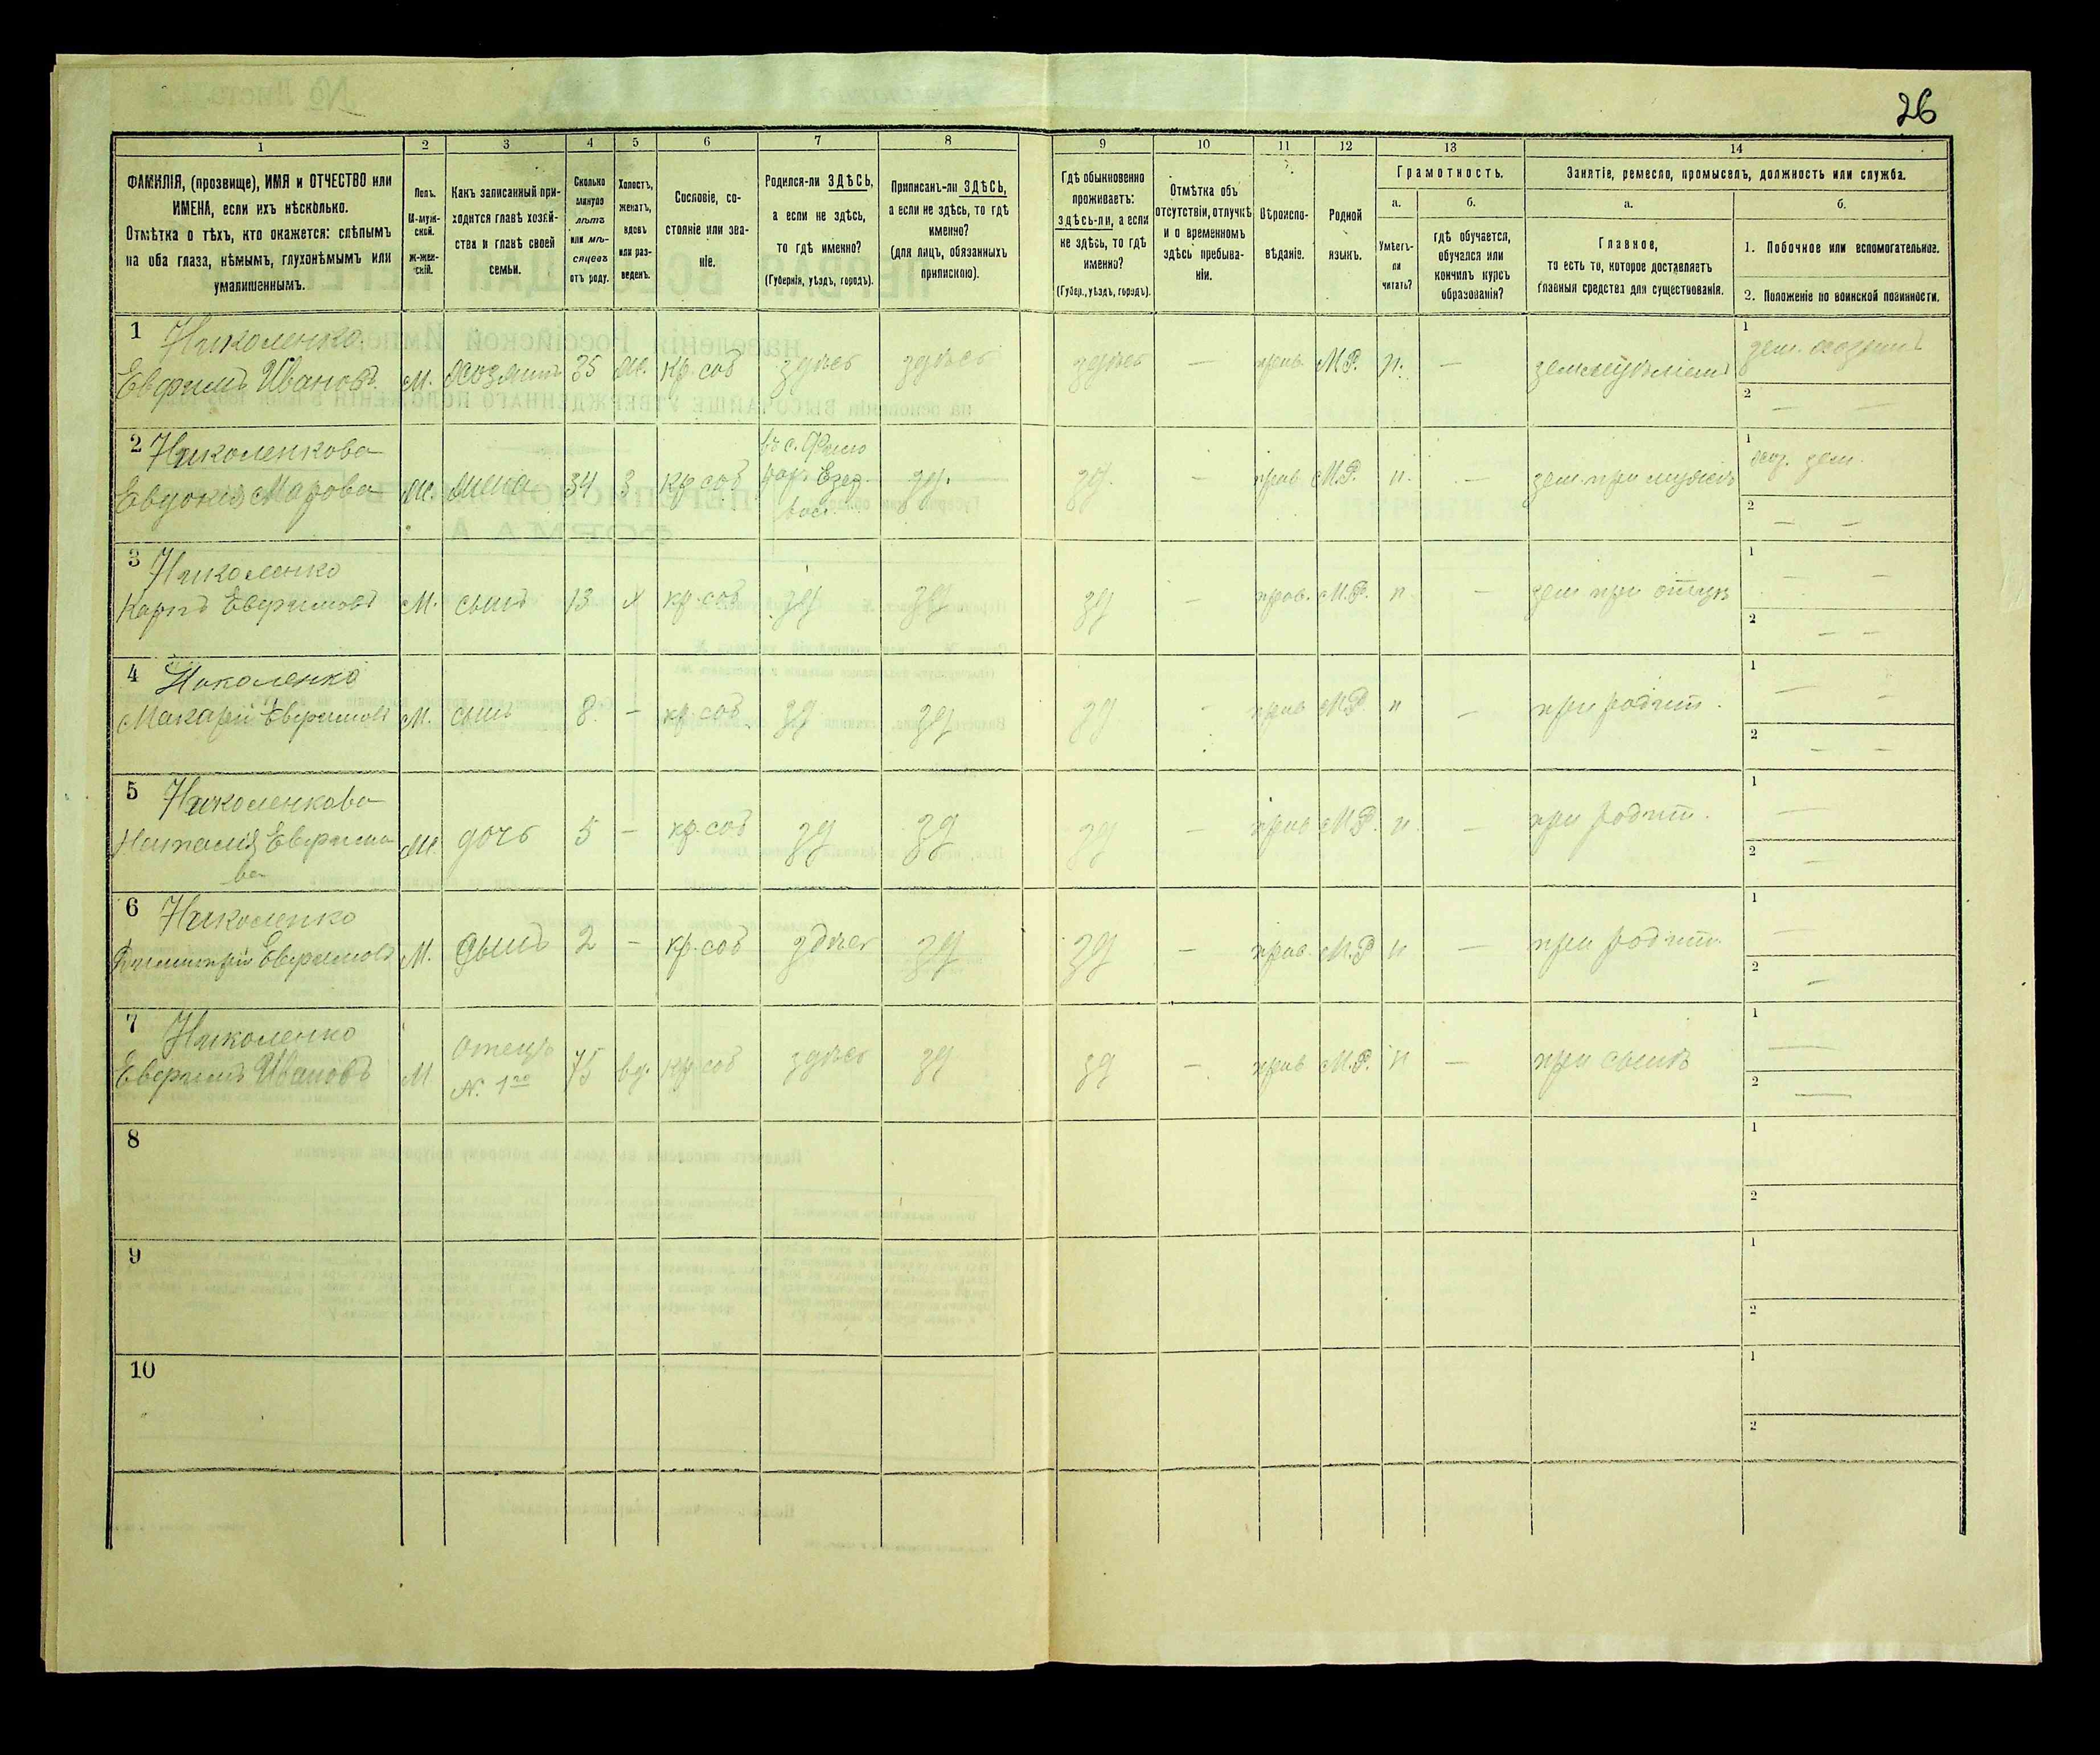 26
1 2 3 4 5 6 7 8 9 10 11 12 13 14
ФАМИЛІЯ, (прозвище), ИМЯ и ОТЧЕСТВО или
ИМЕНА, если ихъ нѣсколько.
Отмѣтка о тѣхъ, кто окажется: слѣпымъ
на оба глаза, нѣмымъ, глухонѣмымъ или
умалишеннымъ.
Полъ.
М-муж-
ской.
Ж-жен-
скій.
Какъ записанный при-
ходится главѣ хозяй-
ства и главѣ своей
семьи.
Сколько
минуло
лѣтъ
или мѣ-
сяцевъ
отъ роду.
Холостъ,
женатъ,
вдовъ
или раз-
веденъ.
Сословіе, со-
стояніе или зва-
ніе.
Родился-ли ЗДѢСЬ,
а если не здѣсь,
то гдѣ именно?
(Губернія, уѣздъ, городъ).
Приписанъ-ли ЗДѢСЬ,
а если не здѣсь, то гдѣ
именно?
(для лицъ, обязанныхъ
припискою).
Гдѣ обыкновенно
проживаетъ:
здѣсь-ли, а если
не здѣсь, то гдѣ
именно?
(Губер., уѣздъ, городъ).
Отмѣтка объ
отсутствіи, отлучкѣ
и о временномъ
здѣсь пребыва-
ніи.
Вѣроиспо-
вѣданіе.
Родной
языкъ.
Грамотность.
а.
Умѣетъ-
ли
читать?
б.
гдѣ обучается,
обучался или
кончилъ курсъ
образованія?
Занятіе, ремесло, промыселъ, должность или служба.
а.
Главное,
то есть то, которое доставляетъ
главныя средства для существованія.
б.
1. Побочное или вспомогательное.
2. Положеніе по воинской повинности.
1 Николенко
Евфимъ Ивановъ М. хозяинъ 35 ж. кр. соб здѣсь здѣсь здѣсь — прав. М.Р. н. — земледѣліемъ
1
2 — —
2 Николенкова
Евдокія М. Ж. жена 34 З кр соб зд. зд. — прав М.Р. н. — зем. при мужѣ
1
2 — —
3 Николенко
Карпъ Евфимовъ М. сынъ 13 х кр. соб зд зд зд — прав. М.Р. н — зем при отцѣ
1 — —
2 — —
4 Николенко
Макарій Евфимовъ М. сынъ 8. — кр. соб. зд зд зд - прав М.Р н — при родит.
1 — —
2 — —
5 Николенкова
Наталія Евфимо
ва Ж. дочь 5 — кр. соб зд зд зд — прав М.Р. н. — при родит.
1 —
2 —
6 Николенко
Димитрій Евфимовъ М. сынъ 2 — кр. соб здѣсь зд зд — прав. М.Р н — при родит.
1 —
2 —
7 Николенко
Евфимъ Ивановъ М отецъ
N. 1го 75 вд. кр. соб здѣсь зд зд — прав М.Р. н — при сынѣ
1 —
2 —
8
1
2
9
1
2
10
1
2